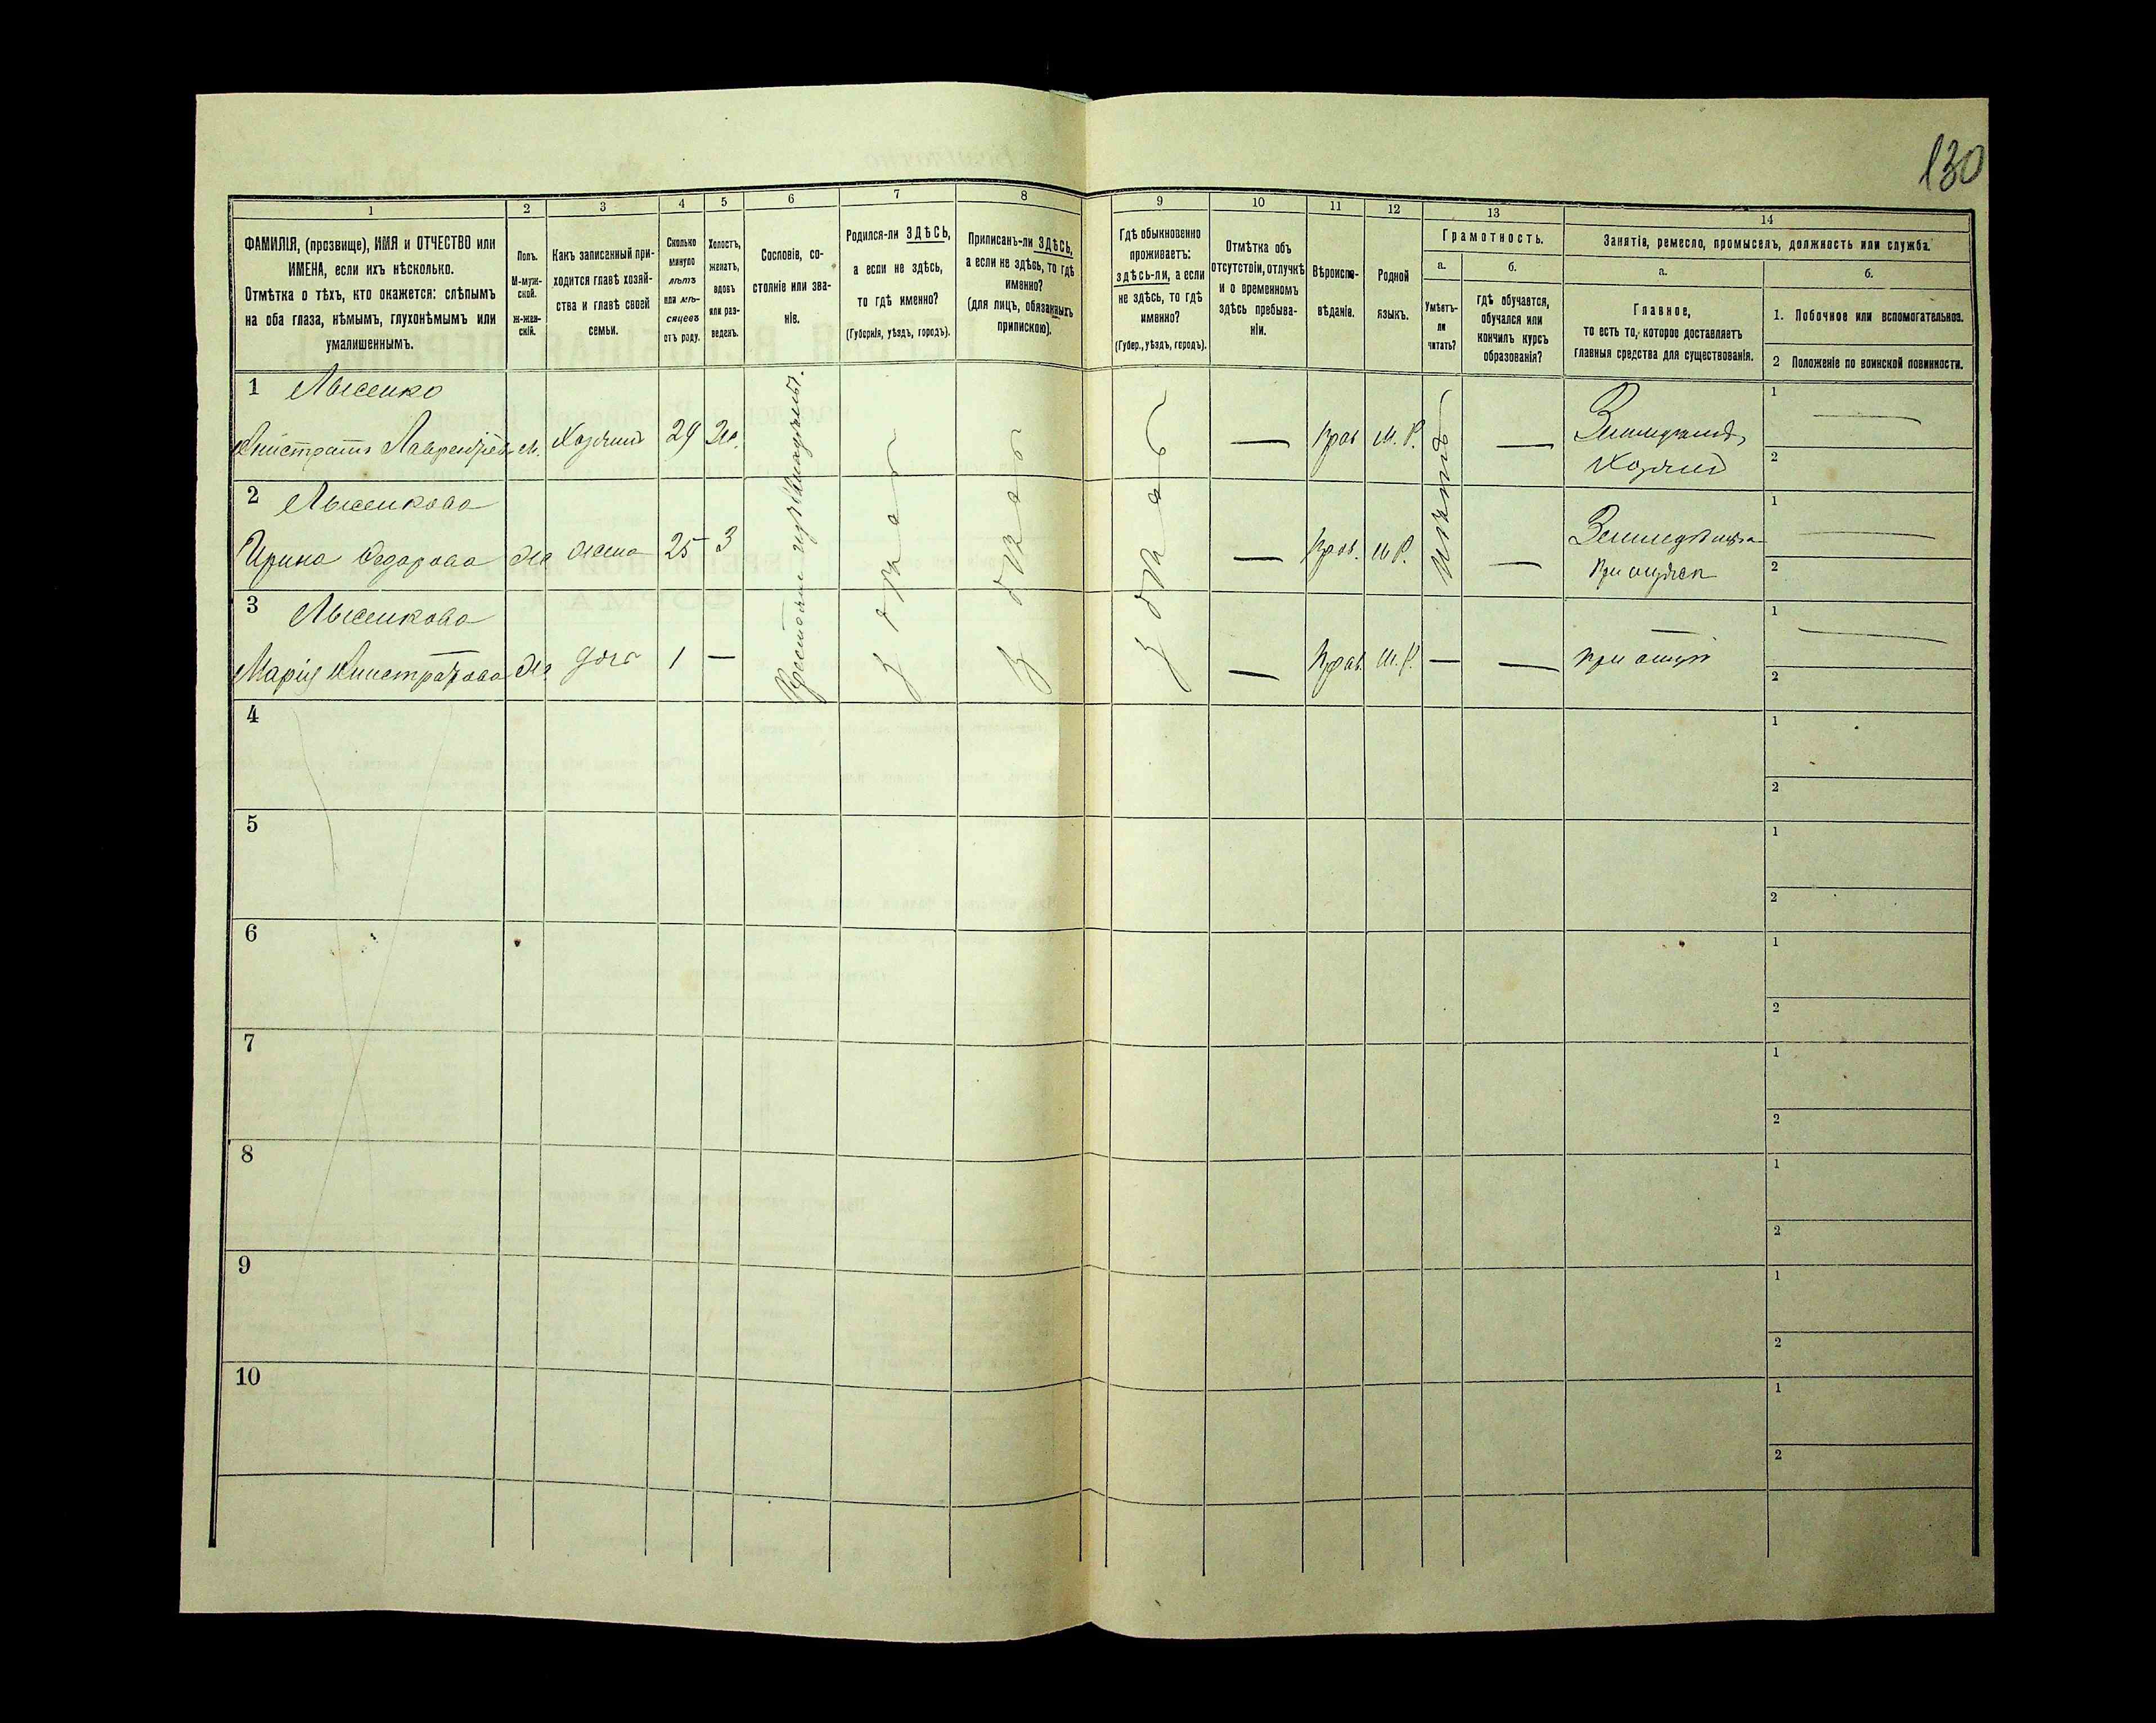 130
1
2
3
4
5
6
7
8
9
10
11
12
13
14
ФАМИЛІЯ, (прозвище), ИМЯ и ОТЧЕСТВО или
ИМЕНА, если ихъ нѣсколько.
Отмѣтка о тѣхъ, кто окажется: слѣпымъ
на оба глаза, нѣмымъ, глухонѣмымъ или
умалишеннымъ.
Полъ.
М-муж-
ской.
Ж-жен-
скій.
Какъ записанный при-
ходится главѣ хозяй-
ства и главѣ своей
семьи.
Сколько
минуло
лѣтъ
или мѣ-
сяцевъ
отъ роду.
Холостъ,
женатъ,
вдовъ
или раз-
веденъ.
Сословіе, со-
стояніе или зва-
ніе.
Родился-ли ЗДѢСЬ,
а если не здѣсь,
то гдѣ именно?
(Губернія, уѣздъ, городъ).
Приписанъ-ли ЗДѢСЬ,
а если не здѣсь, то гдѣ
именно?
(для лицъ, обязанныхъ
припискою).
Гдѣ обыкновенно
проживаетъ:
здѣсь-ли, а если
не здѣсь, то гдѣ
именно?
(Губер., уѣздъ, городъ).
Отмѣтка объ
отсутствіи, отлучкѣ
и о временномъ
здѣсь пребыва-
ніи.
Вѣроиспо-
вѣданіе.
Родной
языкъ.
Грамотность.
а.
Умѣетъ-
ли
читать?
б.
Гдѣ обучается,
обучался или
кончилъ курсъ
образованія?
Занятіе, ремесло, промыселъ, должность или служба.
а.
Главное,
то есть то, которое доставляетъ
главныя средства для существованія.
б.
1. Побочное или вспомогательное.
2 Положеніе по воинской повинности.
1 Лысенко
м. Хозяинъ 29 Же. — Прав М. Р. — 1
Хозяинъ 2
2 Лысенкова
Ирина Федорова Же жена 25 З — Прав. М Р. — 1
2
3 Лысенкова
Марія Же дочь 1 — — Прав М. Р. — — при отцѣ 1
2
здѣсь
здѣсь
здѣсь
4 1
2
5 1
2
6 1
2
7 1
2
8 1
2
9 1
2
10 1
2